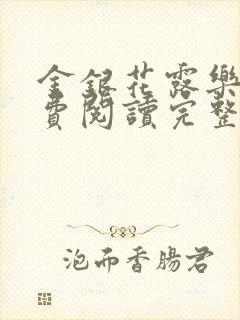 金銀花露樂
費閱讀完整
泡而香腸君